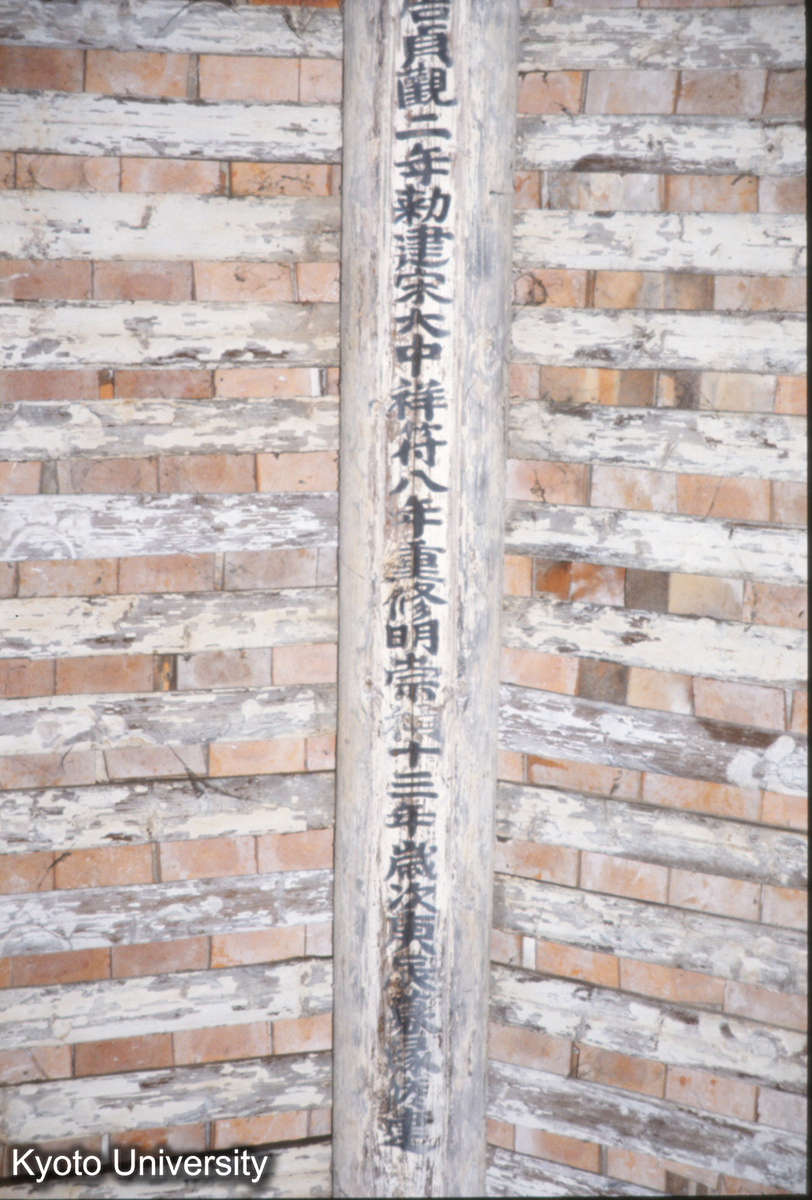 唐貞觀二年勅建宋大中祥符八年重修明崇禎十三年歲次庚辰募緣修建
Kyoto University